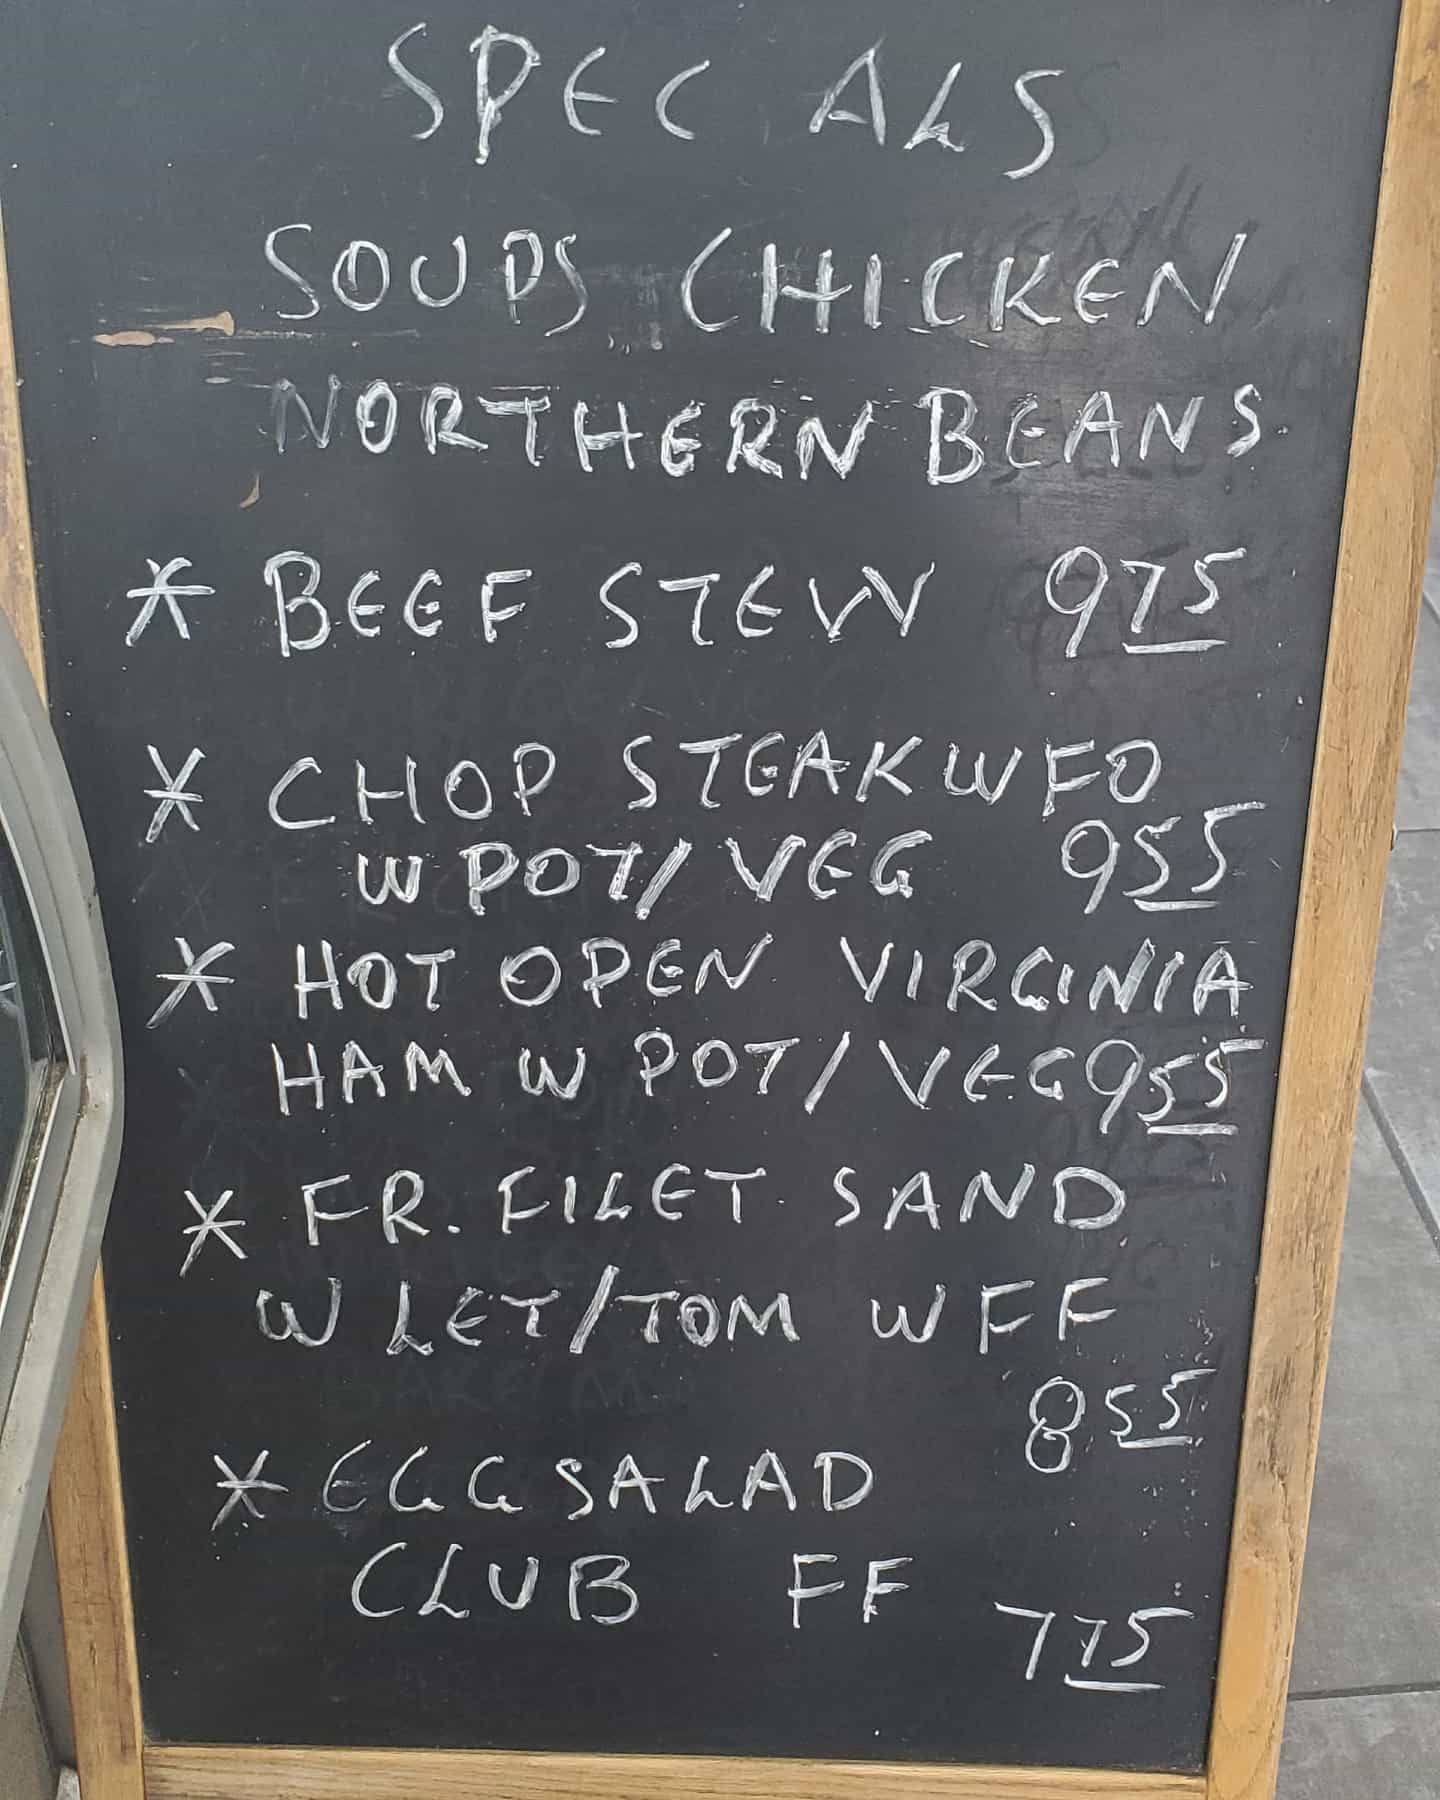 SPEC ALS
SOUPS CHICKEN
NORTHERN BEANS
* BEEF STEW 975
* CHOP STEAK W FO
W POT/VEG 955
* HOT OPEN VIRGINIA
HAM W POT/VEG 955
* FR. FILET SAND
W LET/TOM W FF
855
* EGG SALAD
CLUB FF
775